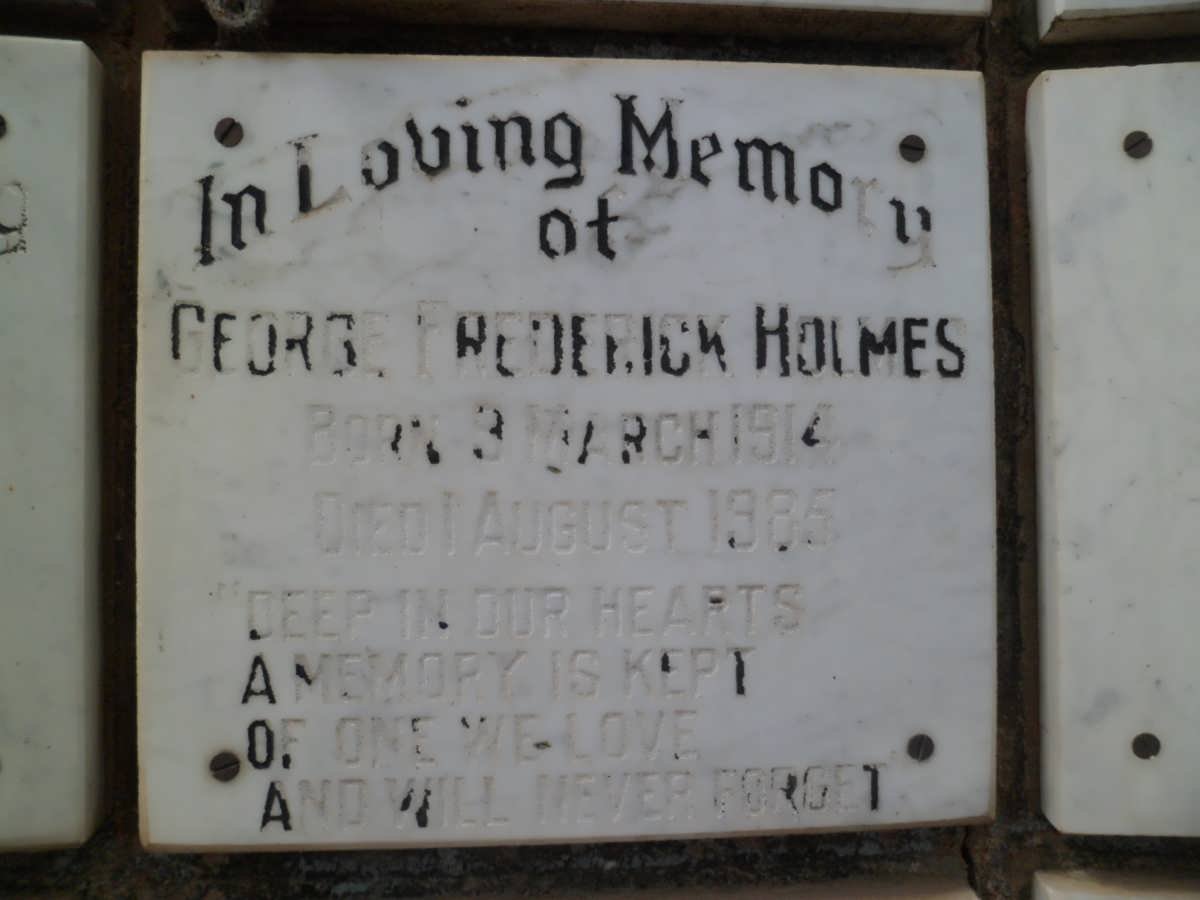 In Loving Memory
of
GEORGE FREDERICK HOLMES
BORN 3 MARCH 1914
DIED 1 AUGUST 1985
"DEEP IN OUR HEARTS
A MEMORY IS KEPT
OF ONE WE LOVE
AND WILL NEVER FORGET"